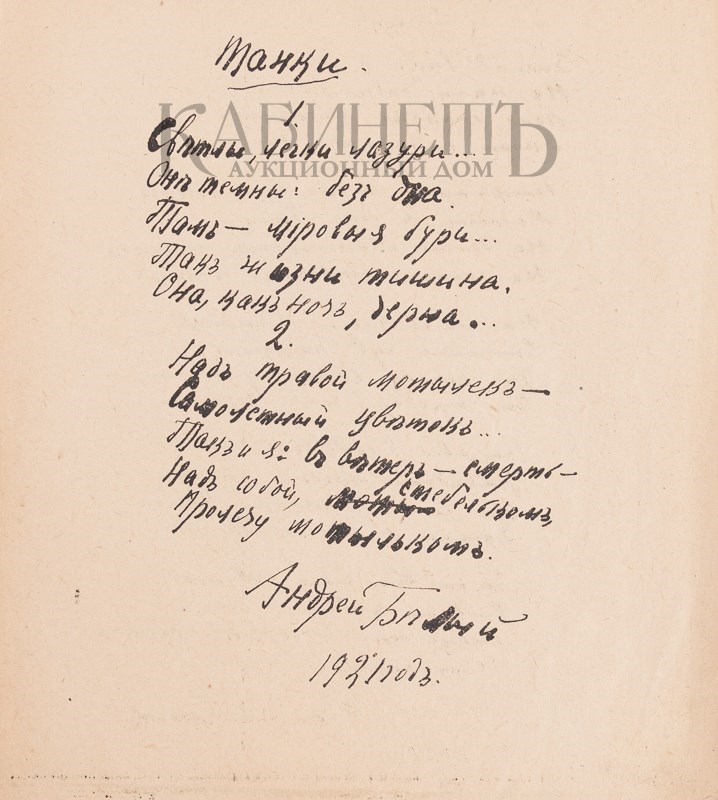 Танки.
КАБИНЕТЪ
АУКЦИОННЫЙ ДОМ
1
Свѣтлы, легки лазури...
Онѣ темны: безъ дна.
Тамъ — міровыя бури...
Такъ жизни тишина.
Она, какъ ночь, черна...
2.
Надъ травой мотылекъ —
Самолетный цвѣтокъ...
Такъ и я: въ вѣтеръ — смерть —
Надъ собой, стебелькомъ,
Пролечу мотылькомъ.
Андрей Бѣлый
1921 годъ.